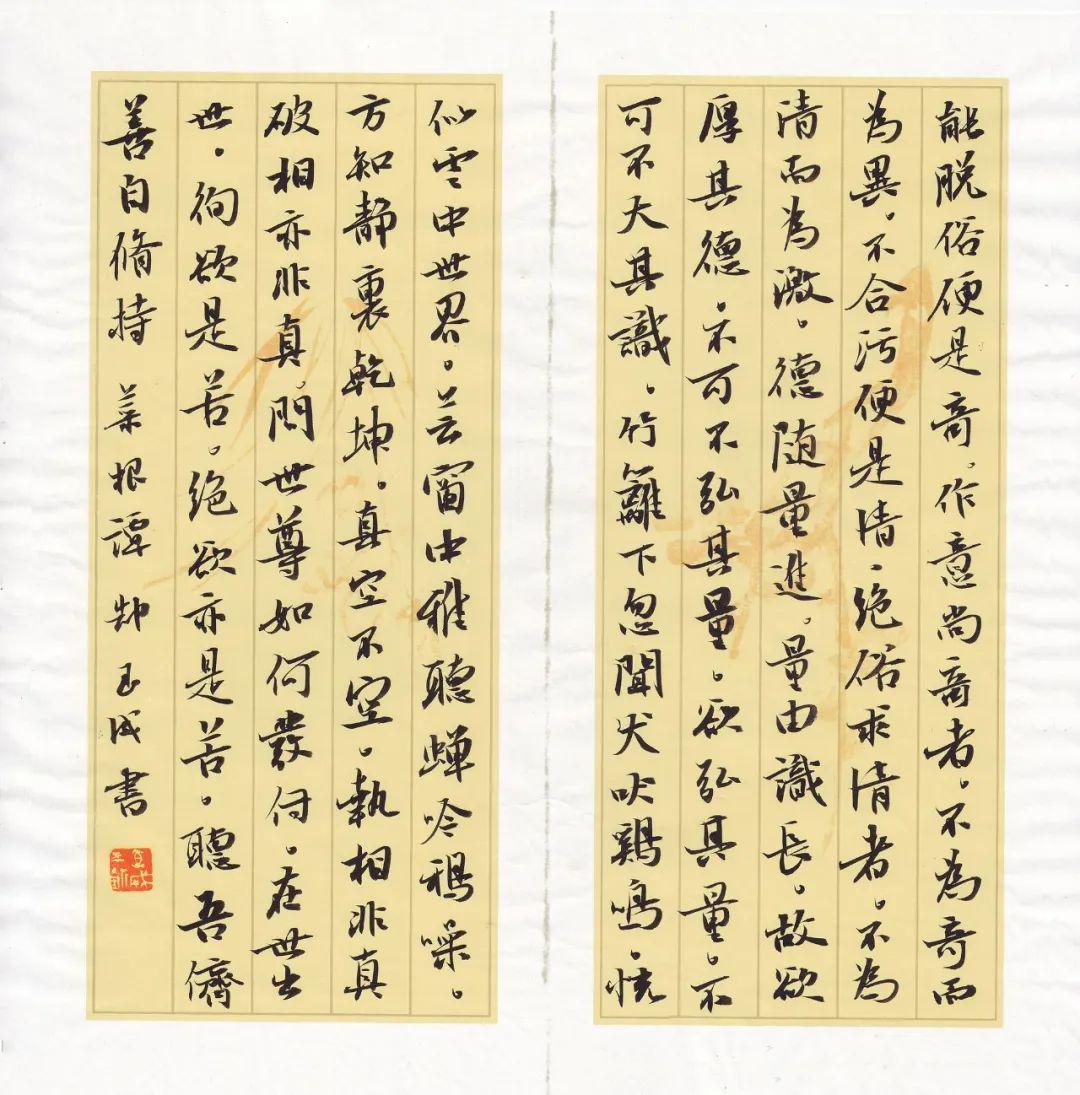 能脱俗便是奇。作意尚奇者。不為奇而
為異。不合污便是清、绝俗求清者。不為
清而為激。德随量進。量由識長。故欲
厚其德。不可不弘其量。欲弘其量。不
可不大其識。竹籬下忽聞犬吠鷄鳴。恍
似雲中世界。芸窗中雅聽蟬吟鴉噪。
方知静裏乾坤。真空不空。執相非真
破相亦非真。問世尊如何發付。在世出
世。徇欲是苦。绝欲亦是苦。聽吾儕
善自脩持 菜根譚 玉成書